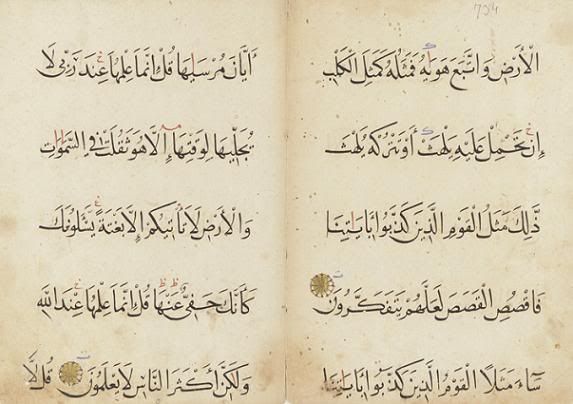 الْأَرْضِ وَاتَّبَعَ هَوَيهُ فَمَثَلُهُ كَمَثَلِ الْكَلْبِ
إِنْ تَحْمِلْ عَلَيْهِ يَلْهَثْ أَوْ تَتْرُكْهُ يَلْهَثْ
ذَّلِكَ مَثَلُ الْقَوْمِ الَّذِينَ كَذَّبُوا بِآيَاتِنَا
فَاقْصُصِ الْقَصَصَ لَعَلَّهُمْ يَتَفَكَّرُونَ
سَاءَ مَثَلًا الْقَوْمُ الَّذِينَ كَذَّبُوا بِآيَاتِنَا
أَيَّانَ مُرْسَيهَا قُلْ إِنَّمَا عِلْمُهَا عِنْدَ رَبِّي لَا
يُجَلِّيهَا لِوَقْتِهَا إِلَّا هُوَ ثَقُلَتْ فِي السَّمَوَاتِ
وَالْأَرْضِ لَا تَأْتِيكُمْ إِلَّا بَغْتَةً يَسْئَلُونَكَ
كَأَنَّكَ حَفِيٌّ عَنْهَا قُلْ إِنَّمَا عِلْمُهَا عِنْدَ اللَّهِ
وَلَكِنَّ أَكْثَرَ النَّاسِ لَا يَعْلَمُونَ قُلْ لَا